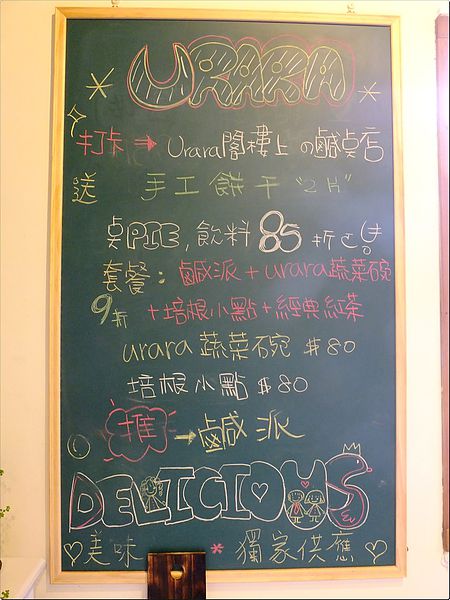 URARA
打卡 ⇒ Urara閣樓上の鹹点店
送 手工餅干 "2片"
点PIE, 飲料 85 折
套餐: 鹹派+urara蔬菜碗
9折 +培根小點+經典紅茶
urara 蔬菜碗 $80
培根小點 $80
推 → 鹹派
DELICIOUS
美味 * 獨家供應